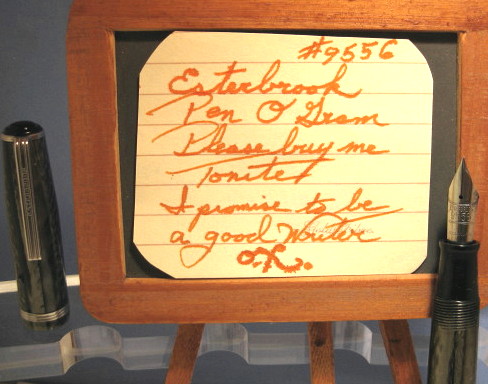 #9556
Esterbrook
Pen O Gram
Please buy me
Tonite!
I promise to be
a good Writer